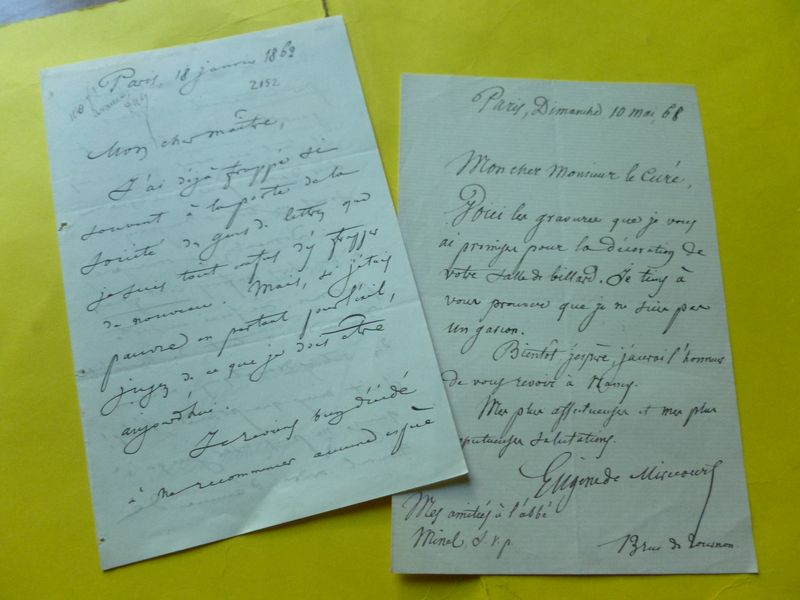 Paris, 18 janvier 1862
2152
Mon cher maître,
J'ai déjà frappé si
souvent à la porte de la
société des gens de lettres que
je suis tout confus d'y frapper
de nouveau. Mais, si j'étais
pauvre en partant pour l'exil,
jugez de ce que je dois être
aujourd'hui.
Je reviens bien décidé
à ne recommencer aucune espèce
Paris, Dimanche 10 mai, 68
Mon cher Monsieur le Curé,
Voici les gravures que je vous
ai promises pour la décoration de
votre salle de billard. Je tiens à
vous prouver que je ne suis pas
un gascon.
Bientôt, j'espère, j'aurai l'honneur
de vous revoir à Nancy.
Mes plus affectueuses et mes plus
respectueuses salutations.
Eugène de Mirecourt
Mes amitiés à l'abbé
Minel, s.v.p.
rue de Tournon